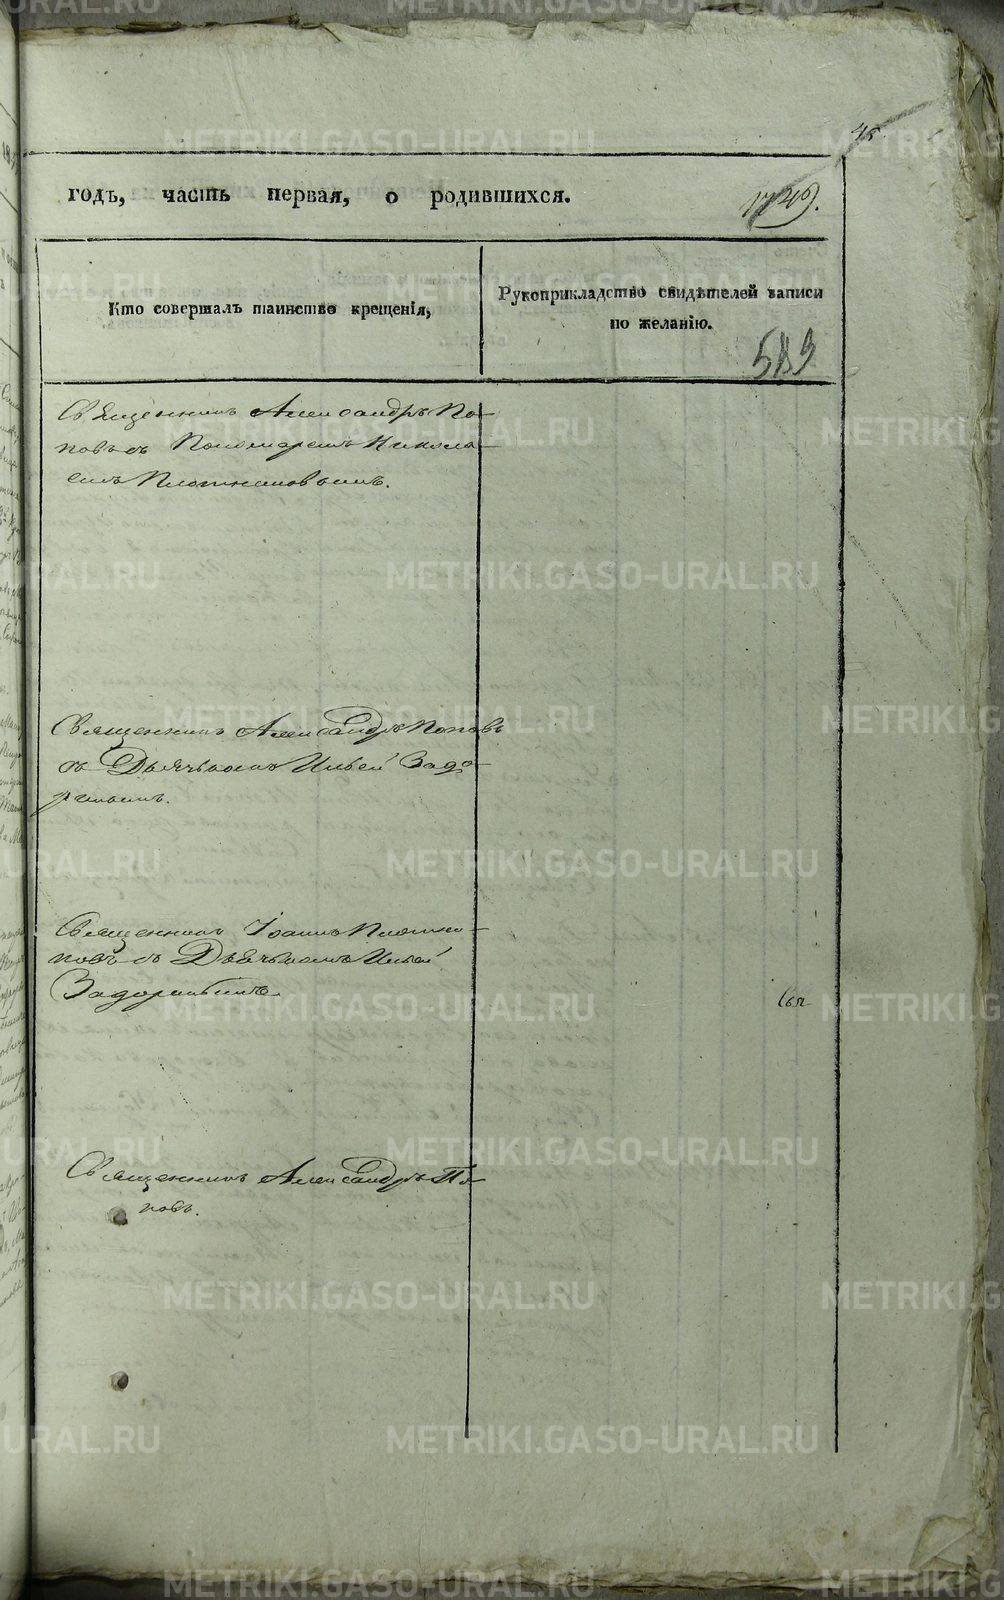 METRIKI.GASO-URAL.RU
45
годъ, часть первая, о родившихся.
Кто совершалъ таинство крещенія,
Рукоприкладство свидѣтелей записи
по желанію.
589
Священникъ Александръ По-
повъ съ Пономаремъ Никола-
емъ Плотниковымъ.
Священникъ Александръ Поповъ
съ Дьячкомъ Ильей Задо-
ринымъ.
Священникъ Іоаннъ Плотни-
ковъ съ Дьячкомъ Ильей
Задоринымъ
Священникъ Александръ По-
повъ.